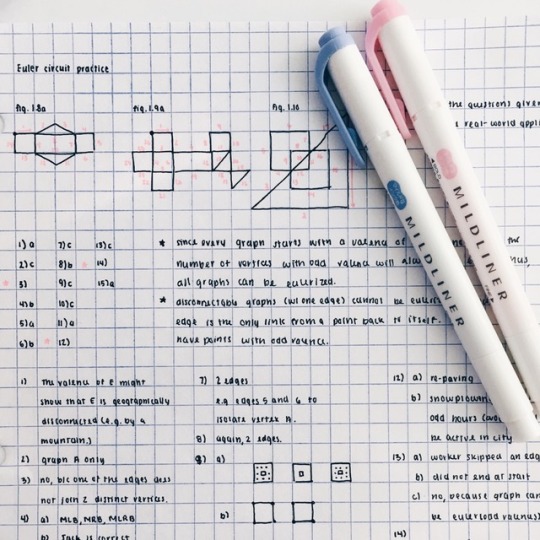 Euler circuit practice
fig. 1.8a
fig. 1.9a
fig. 1.10
the questions given
real-world appli
1) a 7) c 13) c
2) c 8) b 14)
3) 9) c 15) a
4) b 10) c
5) a 11) a
6) b 12)
* since every graph starts with a valence of the
number of vertices with odd valence will
all graphs can be eulerized.
* disconnectable graphs (w/ one edge) cannot be
edge is the only link from a point back to itself.
have points with odd valence.
1) The valence of E might
show that E is geographically
disconnected (e.g. by a
mountain.)
2) graph A only
3) no, b/c one of the edges does
not join 2 distinct vertices.
4) a) MLB, MRB, MLRB
b) Jack is correct
7) 2 edges
e.g edges 5 and 6 to
isolate vertex A.
8) again, 2 edges.
9) a)
b)
12) a) re-paving
b)
odd hours
be active in city
13) a) worker skipped an edg
b) did not end at start
c) no, because graph can
be euler(odd valence)
14)
MILDLINER
MILDLINER